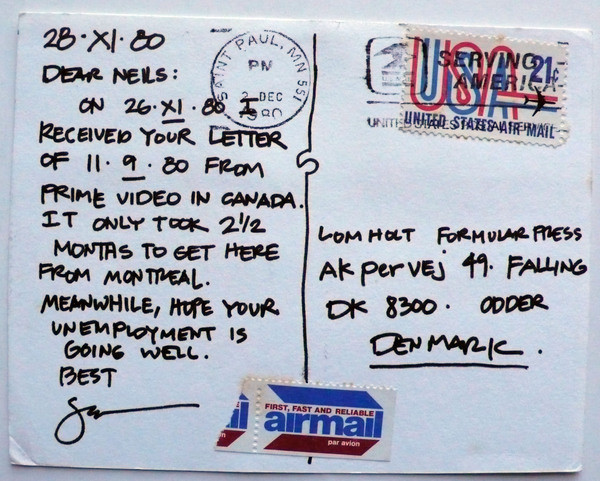 28·XI·80
DEAR NEILS:
ON 26·XI·80 I
RECEIVED YOUR LETTER
OF 11·9·80 FROM
PRIME VIDEO IN CANADA.
IT ONLY TOOK 2 1/2
MONTHS TO GET HERE
FROM MONTREAL.
MEANWHILE, HOPE YOUR
UNEMPLOYMENT IS
GOING WELL.
BEST
SAINT PAUL, MN 551
PM
2 DEC
1980
SERVING
AMERICA
USA 21¢
UNITED STATES AIR MAIL
LOMHOLT FORMULAR PRESS
AKPERVEJ 49. FALLING
DK 8300. ODDER
DENMARK.
FIRST, FAST AND RELIABLE
airmail
par avion